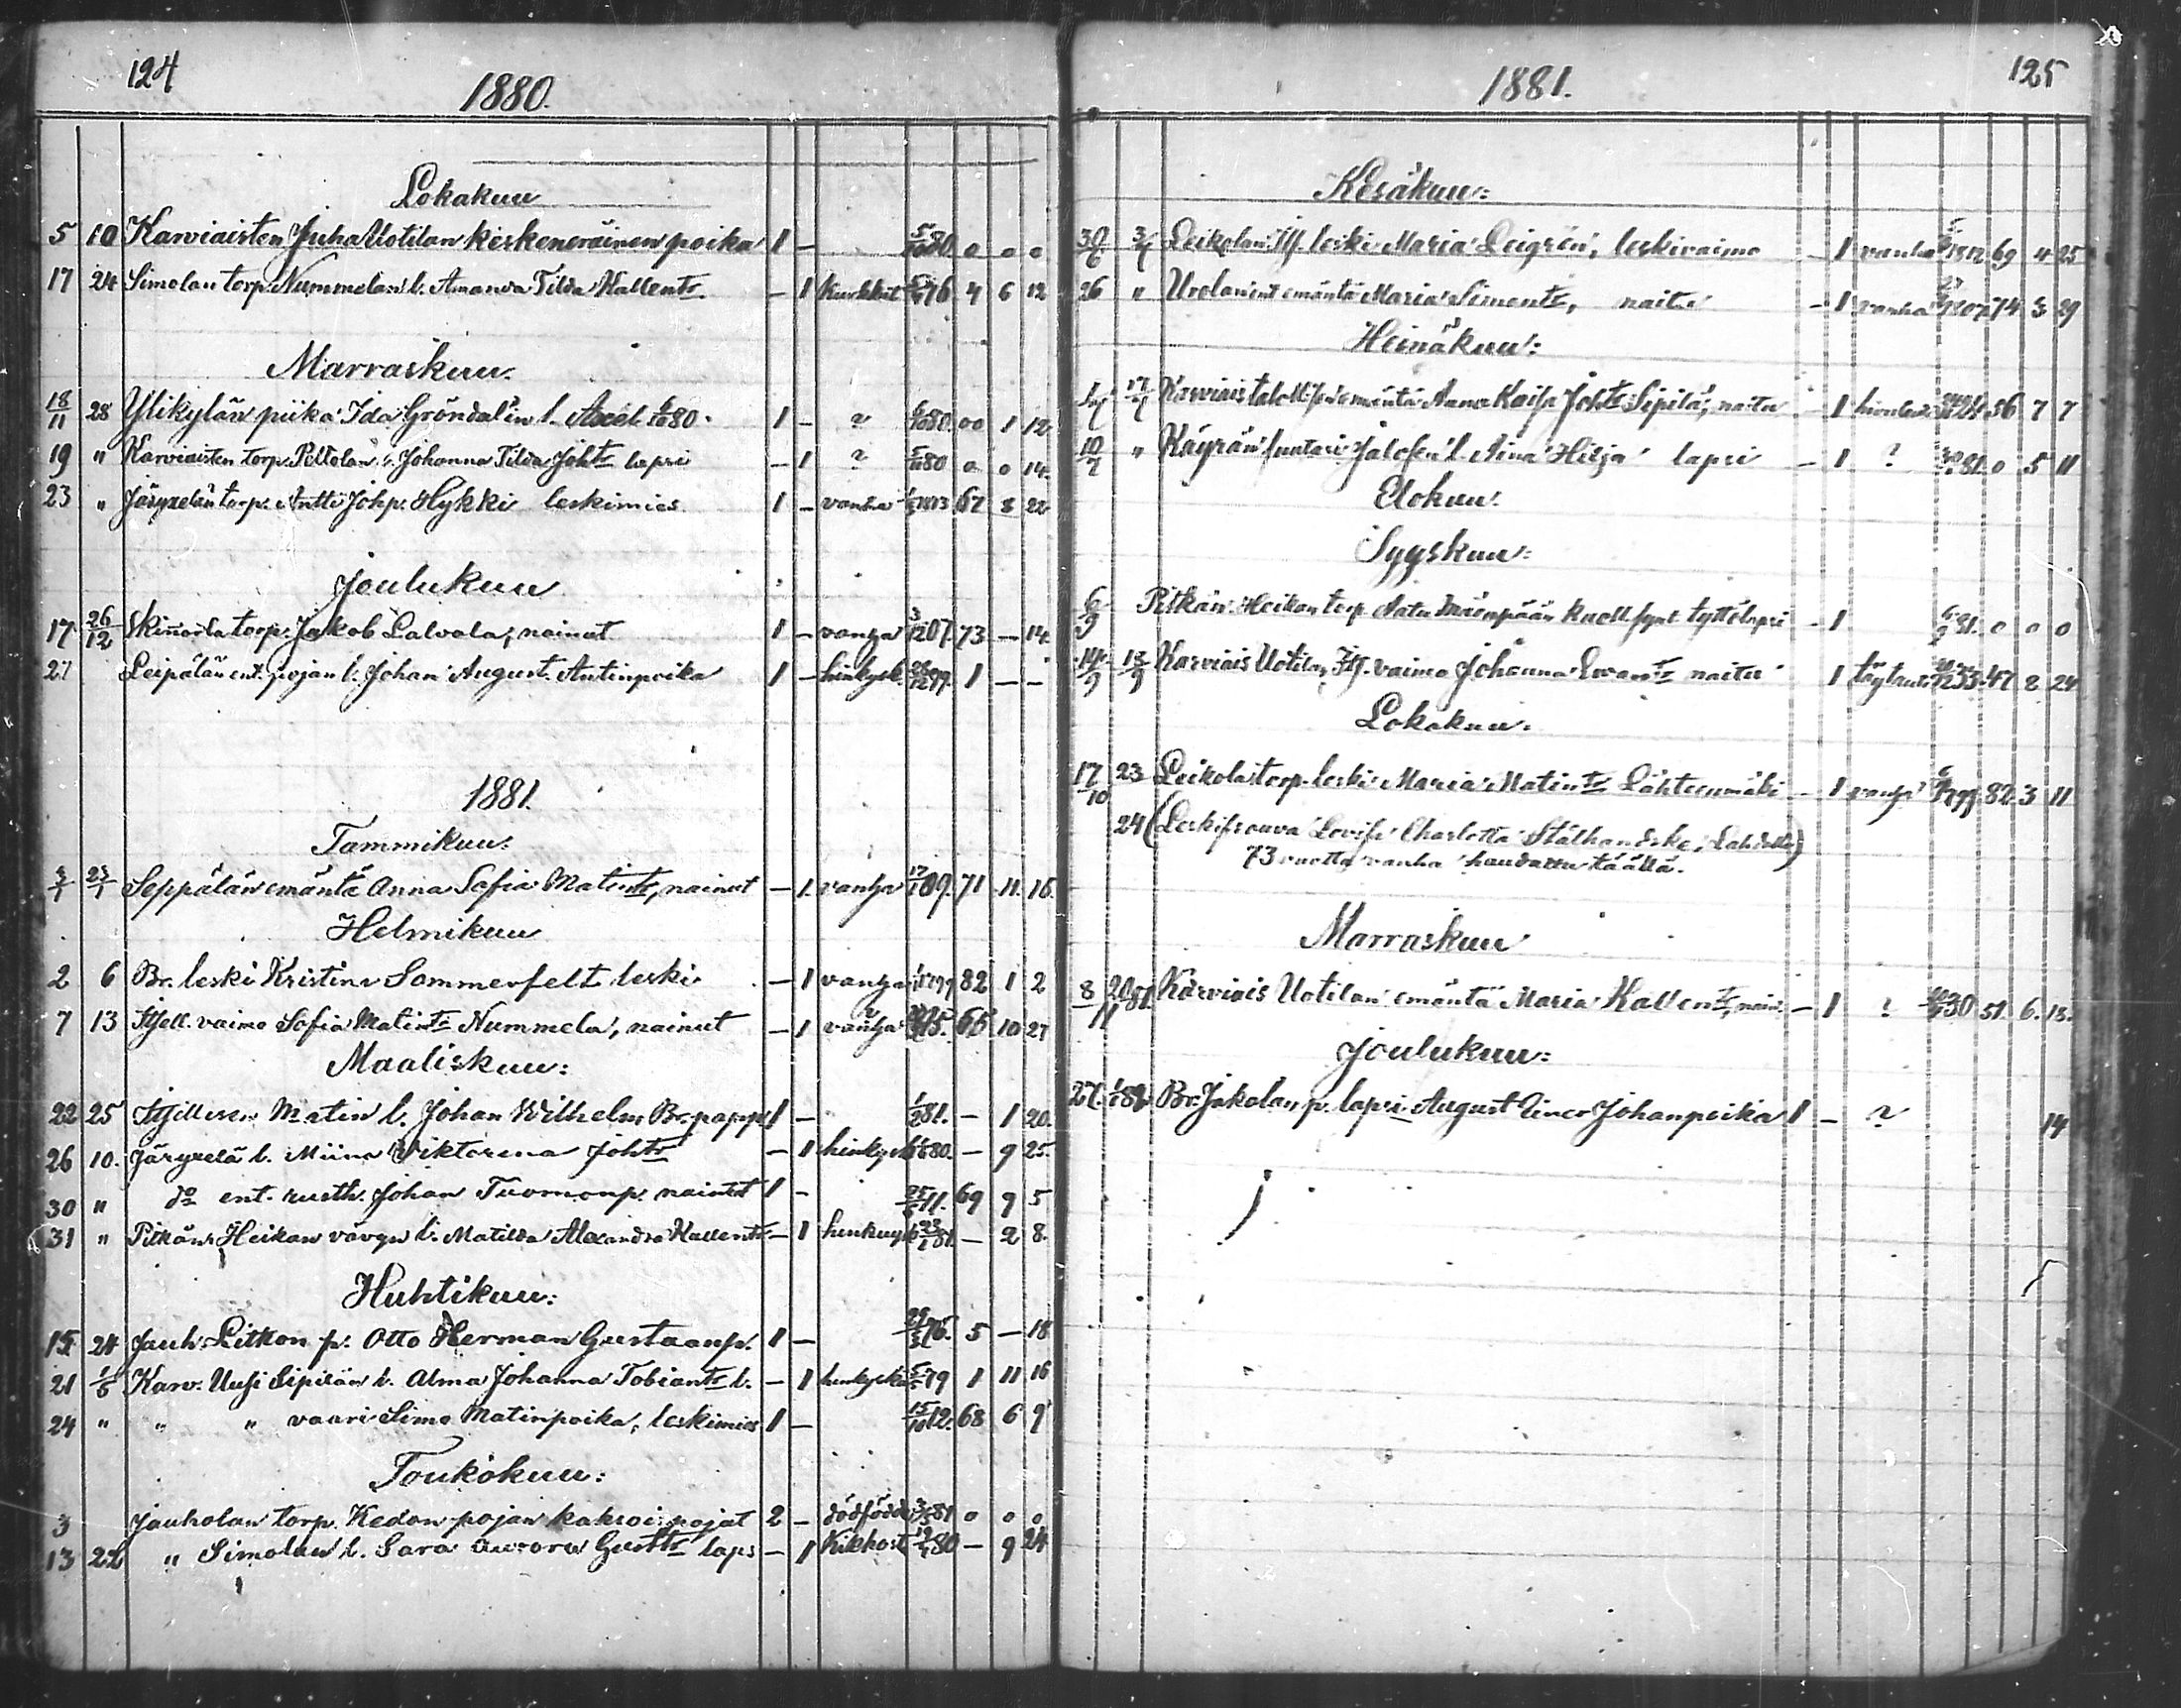 124
1880.
Lokakuu
5 10 Karviaisten Juha Uotilan keskeneräinen poika 1 - 5/10 80. 0 0 0
17 24 Simolan torp. Nummelan l. Amanda Tilda Kallentr - 1 kurkkut 76 4 6 12
Marraskuu.
18/11 28 Ylikylän piika Ida Gröndal'in l. Axel 80. 1 - ? 80. 00 1 12
19 " Karviaisten torp. Peltolan l. Johanna Tilda Johtr lapsi - 1 ? 5/11 80 0 0 14
23 " torp. Antti Johp. Hykki leskimies 1 - vanha 1813 67 8 22
Joulukuu
17 26/12 torp. Jakob Lalvala, nainut 1 - vanha 3/12 07. 73 - 14
27 Leipälän ent. pojan l. Johan August Antinpoika 1 - hinkysk. 79. 1 - -
1881.
Tammikuu.
3/1 23/1 Seppälän emäntä Anna Sofia Matintr, nainut - 1 vanha 17/1 09. 71 11. 16.
Helmikuu
2 6 Br. leski Kristina Sommerfelt leski - 1 vanha 1799 82 1 2
7 13 vaimo Sofia Matintr Nummela, nainut - 1 vanha 15. 65 10 27
Maaliskuu:
22 25 Matin l. Johan Wilhelm Br. 1 - 1/2 81. - 1 20.
26 10. l. Miina Wiktorina Johtr - 1 hinkysk. 80. - 9 25.
30 " do ent. rusth. Johan Tuomonp. nainut 1 - 11. 69 9 5
31 " Pitkän Heikan vävyn l. Matilda Alexandra Kallentr - 1 81. - 2 8.
Huhtikuu:
15 24 Jauh. p. Otto Herman Gustaanp. 1 - 76. 5 - 18
21 1/5 Karv. Uusi Sipilän l. Alma Johanna Tobiantr l. - 1 79 1 11 16
24 " " " vaari Simo Matinpoika, leskimies 1 - 15/10 12. 68 6 9
Toukokuu:
3 Jauholan torp. Kedon pojan kaksoispojat 2 - dödfödde 3/5 81 0 0 0
13 22 " Simolan l. Sara Aurora Gusttr laps - 1 Kikhost 80 - 9 24
125
1881.
Kesäkuu:
30/6 3/7 Leikolan leski Maria Leigrén, leskivaimo - 1 vanha 1812 69 4 25
26 " ent emäntä Maria Simontr, naitu - 1 vanha 1807. 74 3 29
Heinäkuu:
17/7 emäntä Anna Kaisa Johtr Sipilä, naitu - 1 24. 56 7 7
10/7 " Käyrän l. Aina Hilja lapsi - 1 ? 81. 0 5 11
Elokuu.
Syyskuu:
6/9 Pitkän Heikan torp. Aatu Mäenpään kuoll. synt. tyttölapsi - 1 6/9 81. 0 0 0
14/9 18/9 Karviais Uotilan vaimo Johanna Ewantr naitu 1 33. 47 8 24
Lokakuu.
17/10 23 Leikola torp. leski Maria Matintr Lähteenmäki - 1 vanha 1799. 82 3 11
24 (Leskifrouva Lovisa Charlotta Stålhandske,
73 vuotta vanha haudattu täällä.
Marraskuu
8/11 20 81. Karviais Uotilan emäntä Maria Kallentr, nain. - 1 ? 30 51. 6. 13.
Joulukuu:
27. 1/1 82 Br. Jakolan p. lapsi August Johanpoika 1 - ? 14